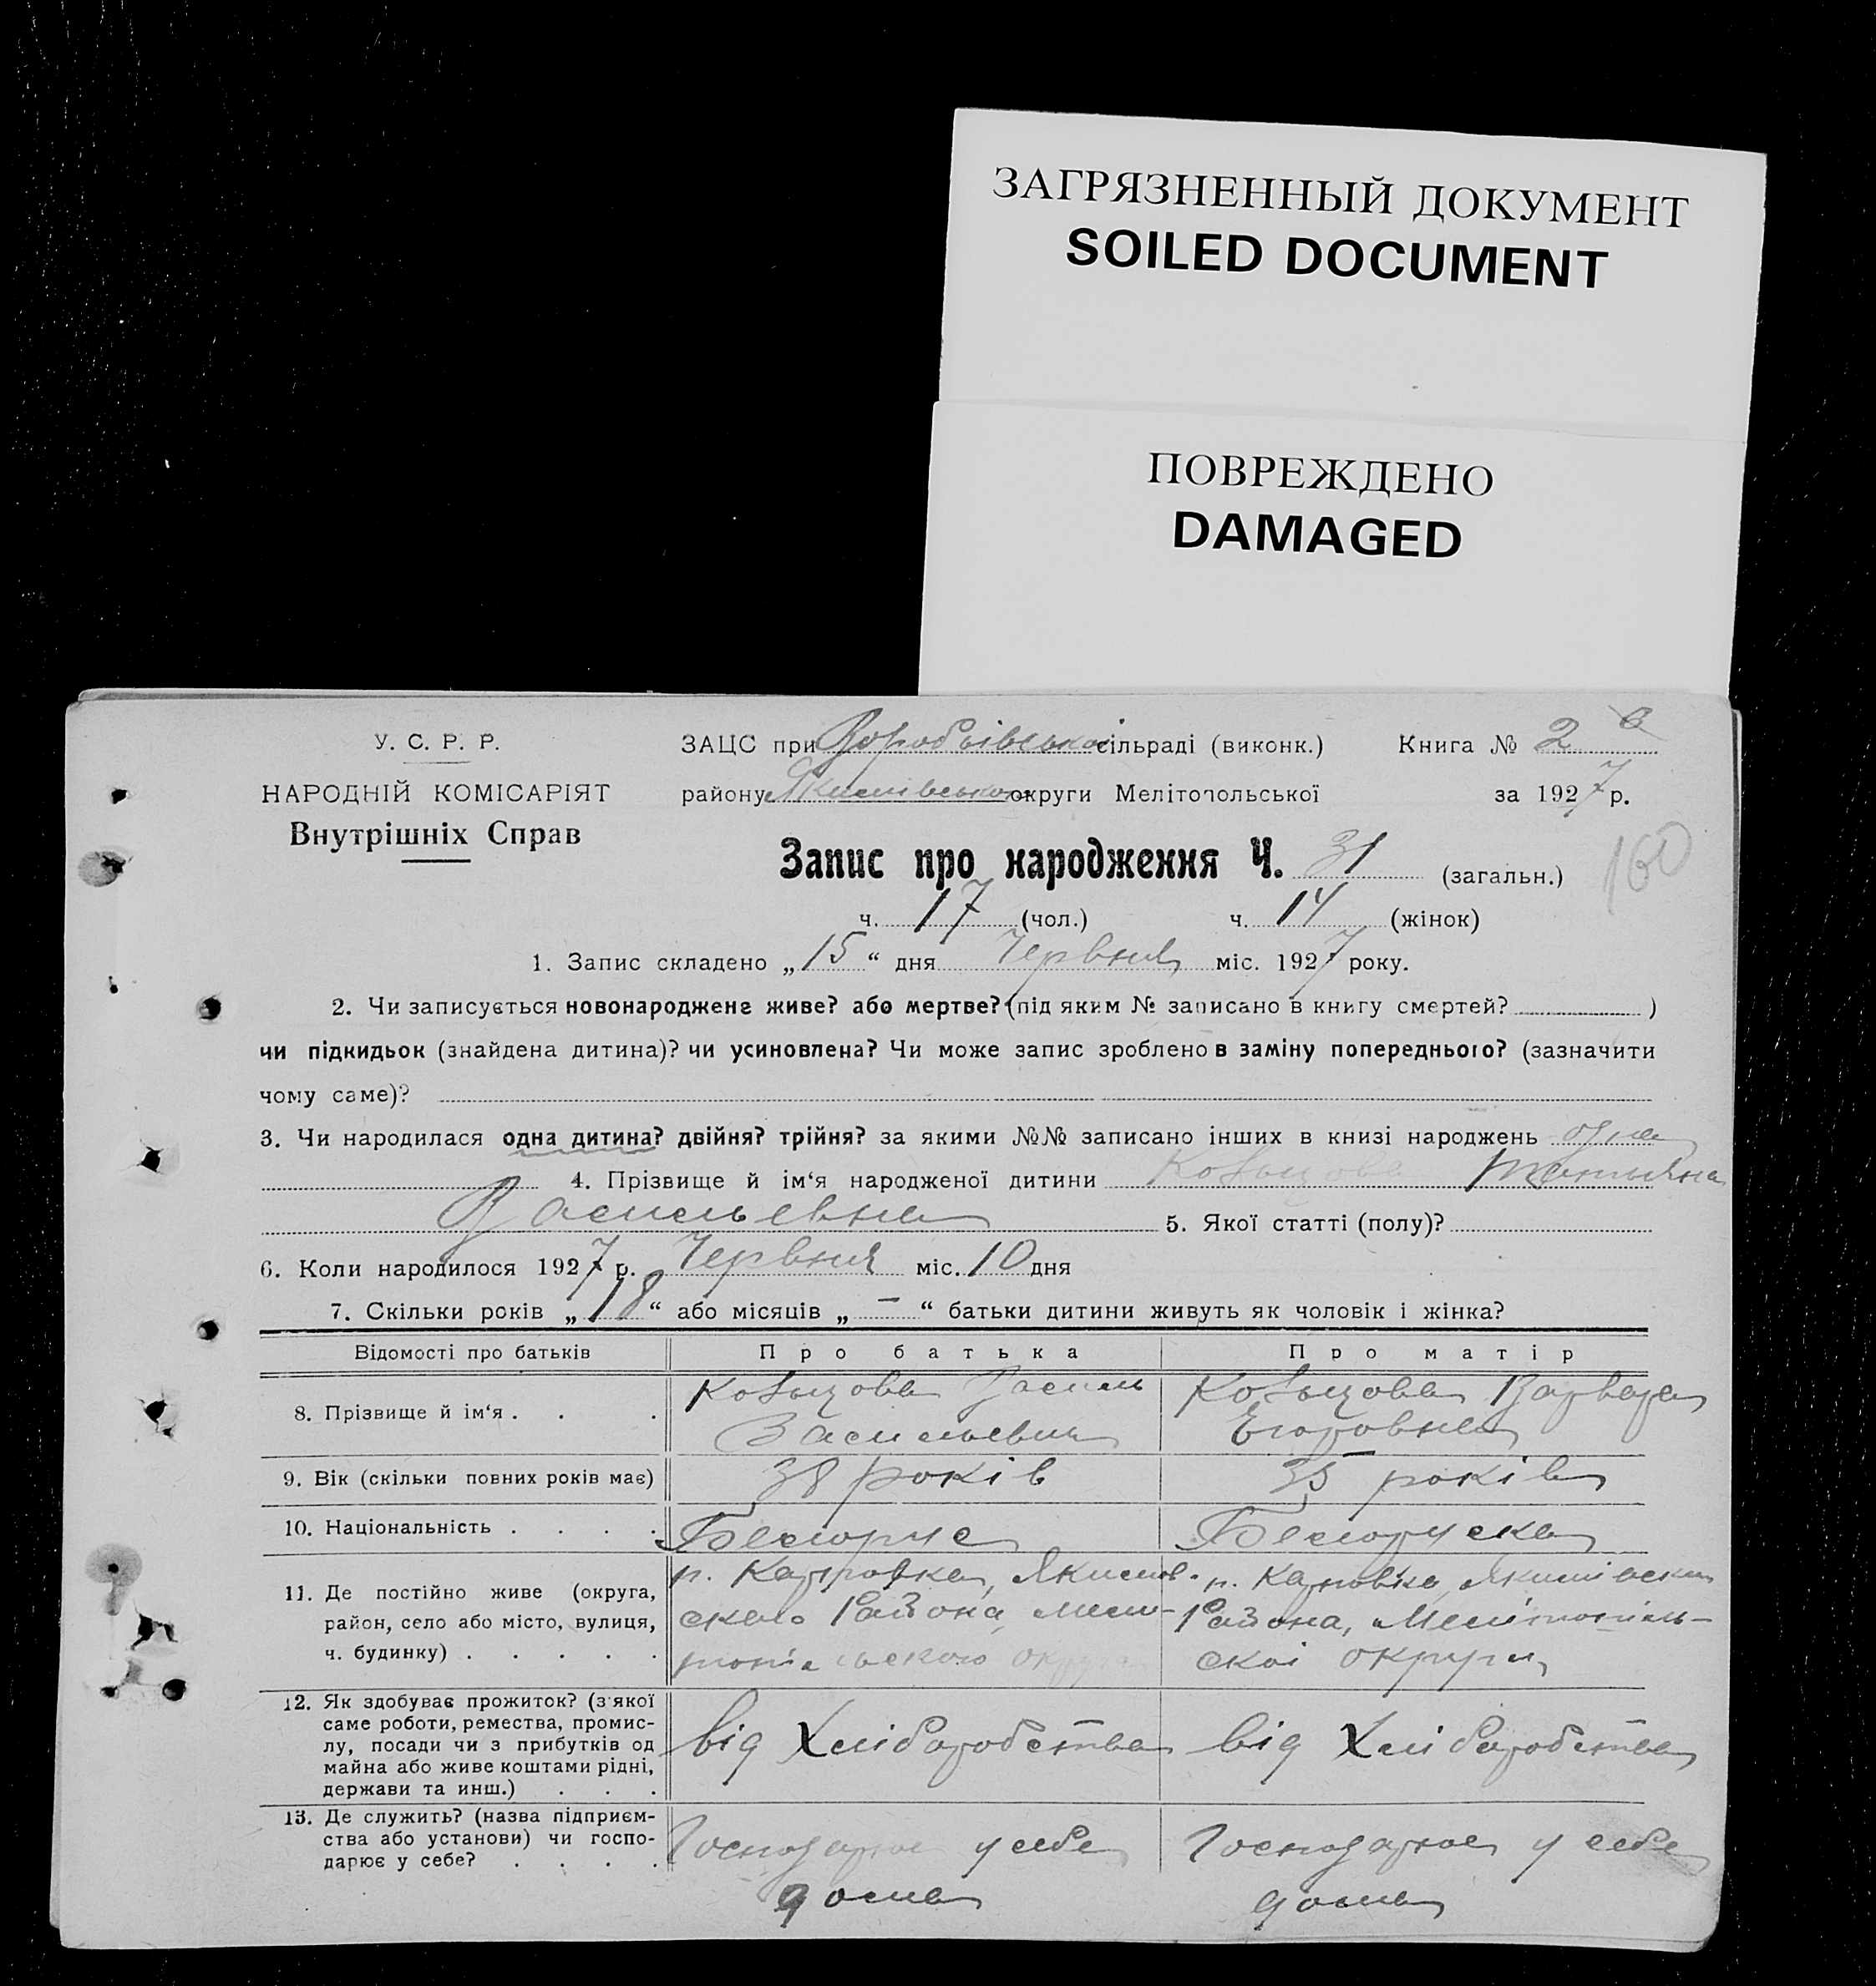 ЗАГРЯЗНЕННЫЙ ДОКУМЕНТ
SOILED DOCUMENT
ПОВРЕЖДЕНО
DAMAGED
У. С. Р. Р.
НАРОДНІЙ КОМІСАРІЯТ
Внутрішніх Справ
ЗАЦС при сільраді (виконк.) Книга № 2
району округи Мелітопольської за 1927 р.
Запис про народження Ч. 31 (загальн.) 160
ч. 17 (чол.) ч. 14 (жінок)
1. Запис складено „15“ дня Червня міс. 1927 року.
2. Чи записується новонароджене живе? або мертве? (під яким № записано в книгу смертей? )
чи підкидьок (знайдена дитина)? чи усиновлена? Чи може запис зроблено в заміну попереднього? (зазначити
чому саме)?
3. Чи народилася одна дитина? двійня? трійня? за якими №№ записано інших в книзі народжень одна
4. Прізвище й ім‘я народженої дитини Татьяна
Васильевна 5. Якої статті (полу)?
6. Коли народилося 1927 р. Червня міс. 10 дня
7. Скільки років „18“ або місяців „—“ батьки дитини живуть як чоловік і жінка?
Відомості про батьків Про батька Про матір
8. Прізвище й ім‘я . . .
Василь
Варвара
Егоровна
9. Вік (скільки повних років має) 38 років 35 років
10. Національність . . . . Белорус Белоруска
11. Де постійно живе (округа,
район, село або місто, вулиця,
ч. будинку) . . . . .
ского Района, Мели-
Района, Мелітопіль-
скоі округи
12. Як здобуває прожиток? (з якої
саме роботи, ремества, промис-
лу, посади чи з прибутків од
майна або живе коштами рідні,
держави та инш.) . . .
від Хлібаробства від Хлібаробства
13. Де служить? (назва підприєм-
ства або установи) чи госпо-
дарює у себе? . . . .
Господарює у себе Господарює у себе
дома дома